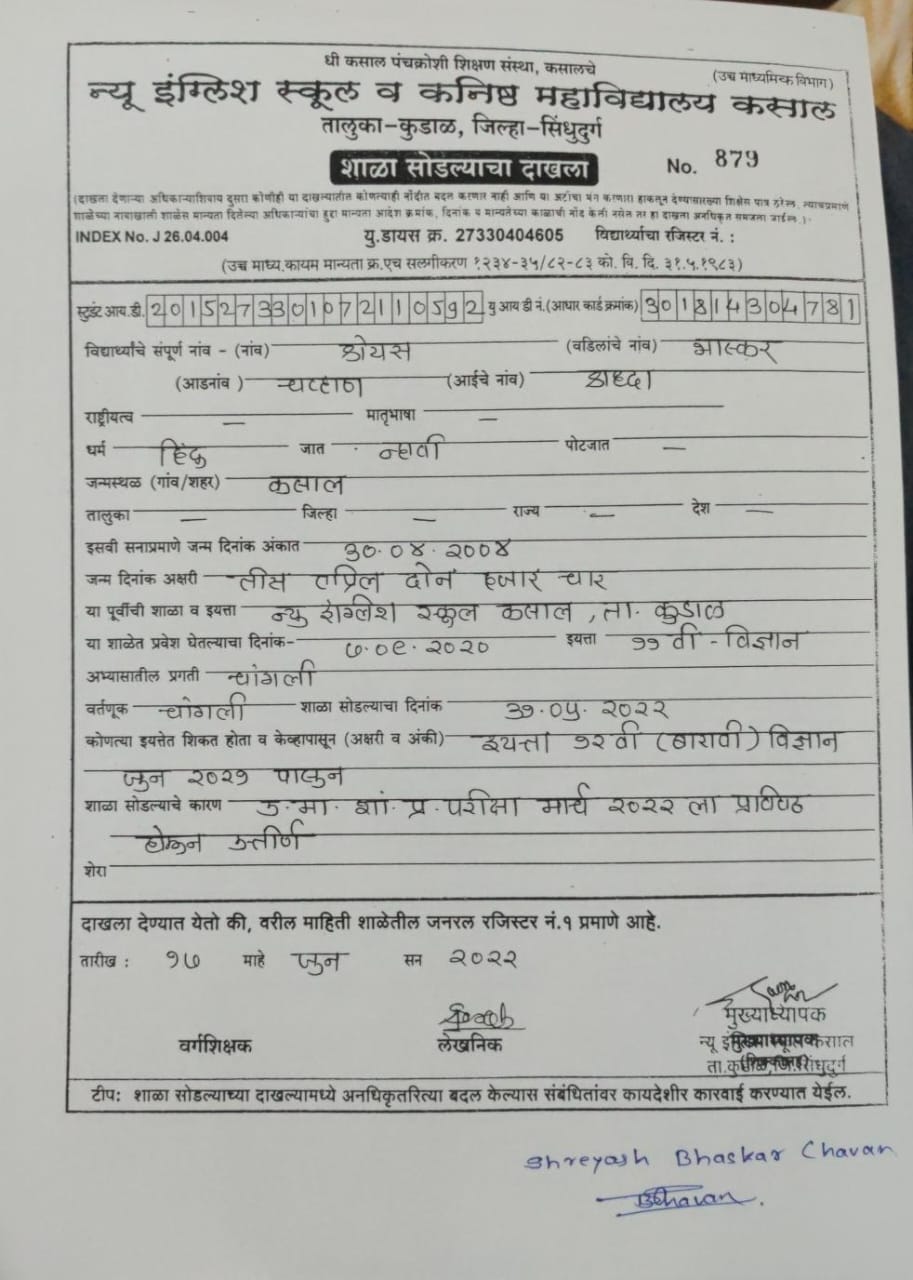 धी कसाल पंचक्रोशी शिक्षण संस्था, कसालचे
(उच्च माध्यमिक विभाग)
न्यू इंग्लिश स्कूल व कनिष्ठ महाविद्यालय कसाल
तालुका-कुडाळ, जिल्हा-सिंधुदुर्ग
शाळा सोडल्याचा दाखला No. 879
(दाखला देणाऱ्या अधिकाऱ्याशिवाय दुसरा कोणीही या दाखल्यातील कोणत्याही नोंदीत बदल करणार नाही आणि या अटींचा भंग करणारा हाकलून देण्यासारख्या शिक्षेस पात्र ठरेल. त्याचप्रमाणे
शाळेच्या नावाखाली शाळेस मान्यता दिलेल्या अधिकाऱ्यांचा हुद्दा मान्यता आदेश क्रमांक, दिनांक व मान्यतेच्या काळाची नोंद केली नसेल तर हा दाखला अनधिकृत समजला जाईल.)
INDEX No. J 26.04.004 यु.डायस क्र. 27330404605 विद्यार्थ्याचा रजिस्टर नं. :
(उच्च माध्य.कायम मान्यता क्र.एच सलगीकरण १२३४-३५/८२-८३ को. वि. दि. ३१.५.१९८३)
स्टुडंट आय.डी. 2015273301072110592 यु आय डी नं.(आधार कार्ड क्रमांक) 301814304781
विद्यार्थ्याचे संपूर्ण नांव - (नांव) श्रेयस (वडिलांचे नांव) भास्कर
(आडनांव) चव्हाण (आईचे नांव) श्रध्दा
राष्ट्रीयत्व — मातृभाषा —
धर्म हिंदु जात न्हावी पोटजात —
जन्मस्थळ (गांव/शहर) कसाल
तालुका — जिल्हा — राज्य — देश —
इसवी सनाप्रमाणे जन्म दिनांक अंकात ३०.०४.२००४
जन्म दिनांक अक्षरी तीस एप्रिल दोन हजार चार
या पूर्वीची शाळा व इयत्ता न्यु इंग्लिश स्कुल कसाल, ता. कुडाळ
या शाळेत प्रवेश घेतल्याचा दिनांक- ७.०९.२०२० इयत्ता ११ वी - विज्ञान
अभ्यासातील प्रगती चांगली
वर्तणूक चांगली शाळा सोडल्याचा दिनांक ३१.०५.२०२२
कोणत्या इयत्तेत शिकत होता व केव्हापासून (अक्षरी व अंकी) इयत्ता १२वी (बारावी) विज्ञान
जुन २०२१ पासुन
शाळा सोडल्याचे कारण उ.मा.शा.प्र.परीक्षा मार्च २०२२ ला प्रविष्ठ
होऊन उत्तीर्ण
शेरा
दाखला देण्यात येतो की, वरील माहिती शाळेतील जनरल रजिस्टर नं.१ प्रमाणे आहे.
तारीख : १७ माहे जुन सन २०२२
वर्गशिक्षक लेखनिक मुख्याध्यापक
न्यू इंग्लिश स्कूल कसाल
ता.कुडाळ, जि.सिंधुदुर्ग
टीप: शाळा सोडल्याच्या दाखल्यामध्ये अनधिकृतरित्या बदल केल्यास संबंधितांवर कायदेशीर कारवाई करण्यात येईल.
Shreyash Bhaskar Chavan
BChavan.